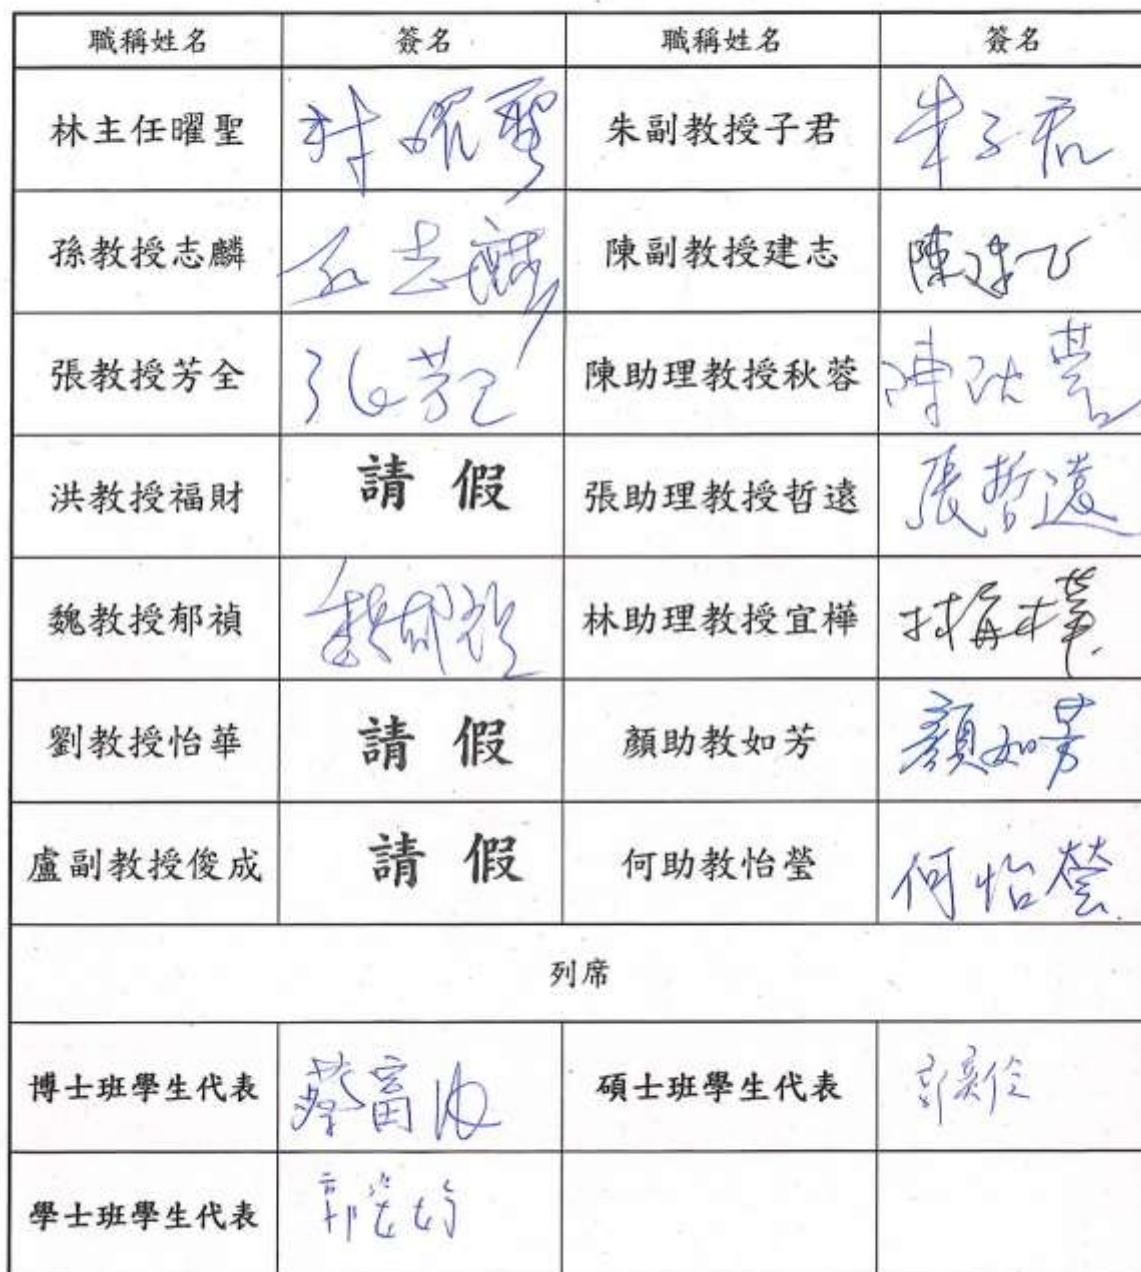 職稱姓名 簽名 職稱姓名 簽名
林主任曜聖 林曜聖 朱副教授子君 朱子君
孫教授志麟 孫志麟 陳副教授建志 陳建志
張教授芳全 張芳全 陳助理教授秋蓉 陳秋蓉
洪教授福財 請假 張助理教授哲遠 張哲遠
魏教授郁禎 魏郁禎 林助理教授宜樺 林宜樺
劉教授怡華 請假 顏助教如芳 顏如芳
盧副教授俊成 請假 何助教怡瑩 何怡瑩
列席
博士班學生代表 蔡富 碩士班學生代表
學士班學生代表 郭